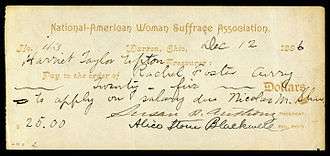 National-American Woman Suffrage Association.
No. 113 Warren, Ohio, Dec 12 1896
Harriet Taylor Upton Treasurer:
Pay to the order of Rachel Foster Avery
twenty-five Dollars
to apply on salary due Nicolas M. Shaw
$25.00 Susan B. Anthony
Alice Stone Blackwell